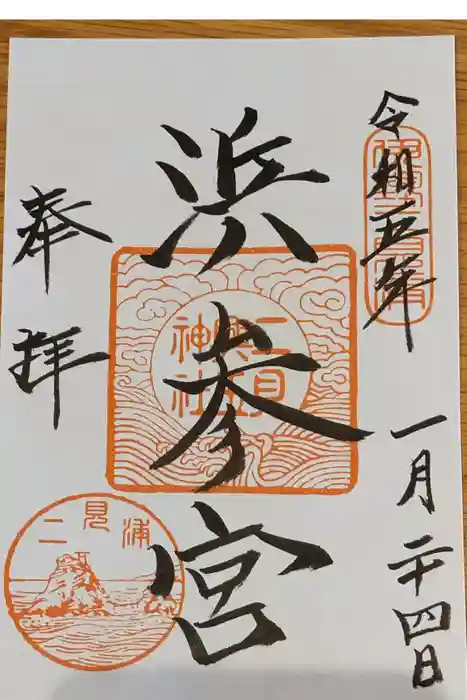 令和五年
一月二十四日
浜参宮
奉拝
二見
興玉
神社
二見浦